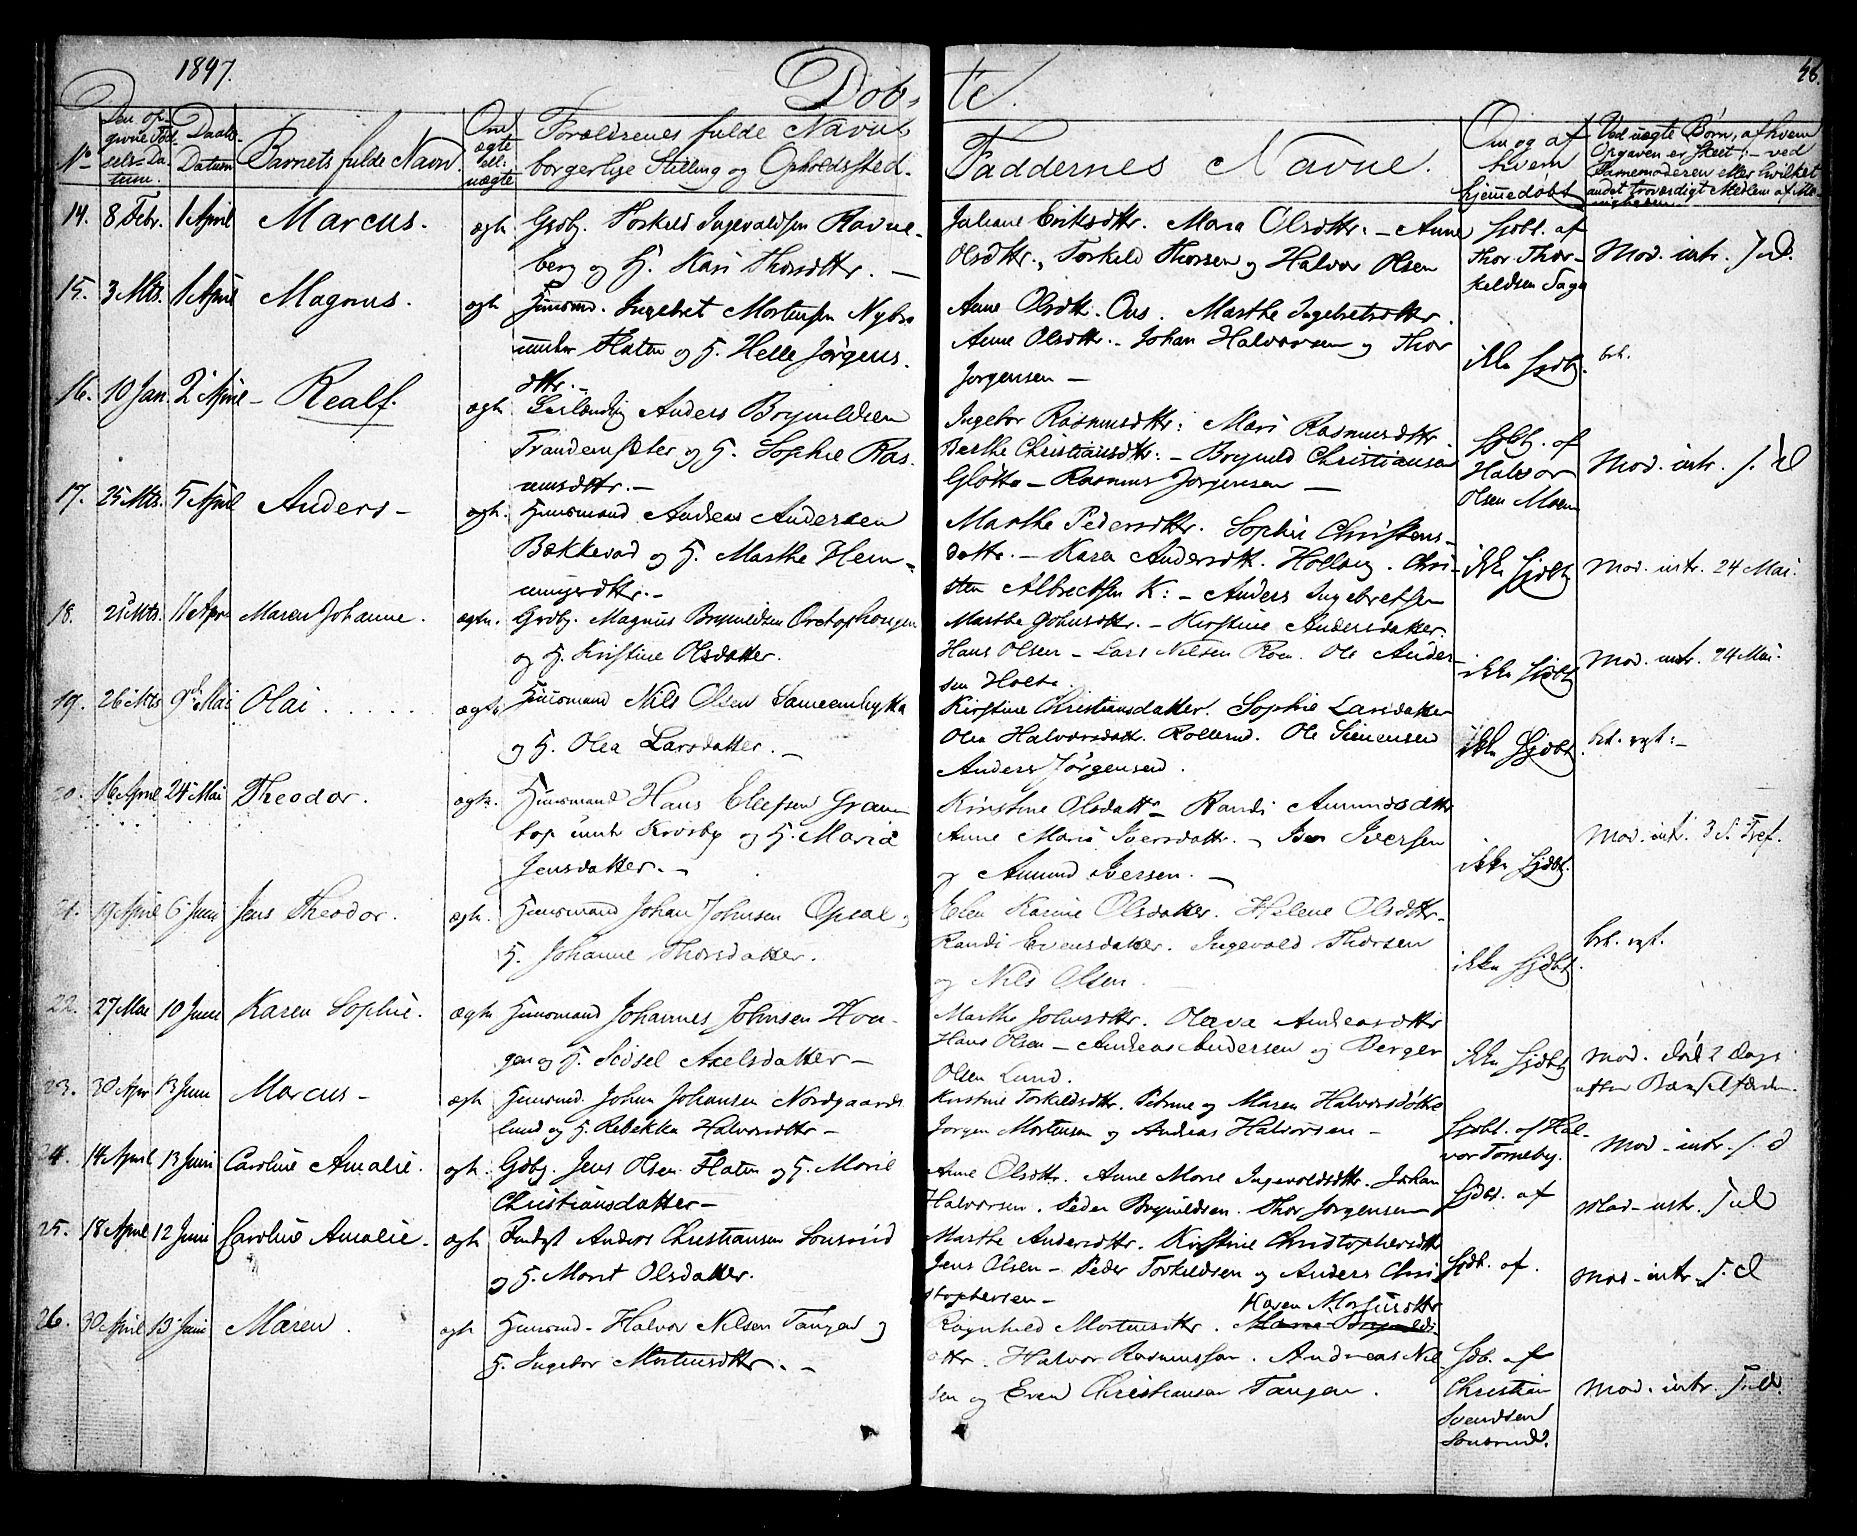 1847.
Døb-
te.
46.
No
Den op-
givne Fød-
sels-Da-
tum.
Daabs-
Datum
Barnets fulde Navn.
Om
ægte
ell:
uægte
Forældrenes fulde Navne,
borgerlige Stilling og Opholdssted.
Faddernes Navne.
Om og af
hvem
hjemmedøbt
Ved uægte Børn, af hvem
Opgaven er skeet: - ved
Barnemoderen eller hvilket
andet troværdigt Medlem af Me-
nigheden
14. 8 Febr. 1 April Marcus. ægte Grdbr. Torkeld Ingevaldsen Ravne-
berg og H. Kari Thorsdttr. —
Juliane Eriksdttr. Maria Olsdttr. - Anne
Olsdttr., Torkeld Thorsen og Halvor Olsen
Hjdbt. af
Thor Thor-
keldsen
Mod. intr. J. d.
15. 3 Mts. 1 April Magnus. ægte Huusmd. Ingebret Mortensen Nybro
under Flaten og H. Helle Jørgens-
dttr. -
Anne Olsdttr. Ous. Marthe Ingebretsdttr.
Anne Olsdttr. - Johan Halvorsen og Thor
Jørgensen —
ikke Hjdbt.
16. 10 Jan. 2 April - Realf. ægte Anders Brynildsen
Trandemsæter og H. Sophie Ras-
musdttr. -
Ingebor Rasmusdttr: Mari Rasmusdttr.
Berthe Christiansdttr: - Brynild Christiansen
Glötta - Rasmus Jørgensen —
Hjdbt. af
Halvor
Olsen Moen
Mod. intr. J. d
17. 25 Mts. 5 April Anders - ægte. Huusmand Andreas Andersen
Bækkevad og H. Marthe Hem-
mingsdttr. -
Marthe Pedersdttr. Sophie Christens-
dattr. - Karen Andersdtt. Christen Albrechtsen K: - Anders Ingebretsen
ikke Hjdbt
Mod. intr. 24 Mai.
18. 21 Mts. 11 April Maren Johanne. ægte. Grdbr. Magnus Brynildsen
og H. Kristine Olsdatter.
Marthe Johnsdttr. - Kirstine Andersdatter.
Hans Olsen - Lars Nilsen Roen. Ole Ander-
sen Holte.
ikke Hjdbt
Mod. intr. 24 Mai.
19. 26 Mts 9de Mai Olai . . . . . ægte Huusmand Nils Olsen
og H. Olea Larsdatter. -
Kirstine Christiansdatter. Sophie Larsdatter
Olea Halvorsdatt. Ole Simensen
Anders Jørgensen.
ikke Hjdbt
20. 16 April 24 Mai Theodor. ægte. Huusmand Hans Gran-
top under Krosby og H. Maria
Jensdatter. -
Kirstine Olsdattr - Randi Amundsdttr
Anne Marie Iversdattr. - Iver Iversen
og Amund Iversen. -
ikke Hjdbt.
Mod. intr. 3 S. Tref.
21. 17 April 6 Juni Jens Theodor. ægte. Huusmand Johan Johnsen og
H. Johanne Thorsdatter.
Elen Karine Olsdatter. Helene Olsdttr.
Randi Evensdatter. Ingevald Thorsen
og Nils Olsen.
ikke Hjdbt.
22. 27 Mai 10 Juni Karen Sophie. ægte Huusmand Johannes Johnsen Hou-
gen og H. Sidsel Axelsdatter -
Marthe Johnsdttr. Oleava Andreasdttr
Hans Olsen - Andreas Andersen og Berger
Olsen Lund.
ikke Hjdbt
Mod. død 2 Dage
efter Barselfærden.
23. 30 Apr 13 Juni Marcus - ægte Huusmd. Johan Johansen Nordgaards-
lund og H. Rebekka Halvorsdttr -
Kirstine Torkildsdttr. Petrine og Maren Halvorsdøttre
Jørgen Mortensen og Andreas Halvorsen -
Hjdbt. af Hal-
vor Torneby.
Mod - intr. J. d
24. 14 April 13 Juni Caroline Amalie. ægte. Gdbr. Jens Olsen Flaten og H. Marie
Christiansdatter -
Anne Olsdttr. Anne Marie Ingevaldsdttr. Johan
Halvorsen. Peder Brynildsen. Thor Jørgensen
Hjdbt. af
Mod - intr. J. d
25. 18 April 12 Juni Caroline Amalie. ægte Anders Christiansen Sonsrød
og H. Marit Olsdatter.
Marthe Andersdttr. Kirstine Christophersdttr
Jens Olsen - Peder Torkildsen og Anders Chri-
stophersen -
Hjdb. af.
Mod - intr. J. d
26. 30 April 13 Juni Maren. ægte Huusmd - Halvor Nilsen Tangen og
H. Ingebor Mortensdttr. -
Karen Mortensdttr
Ragnhild Mortensdttr. Maria Brynildsdttr. Halvor Rasmussen. Andreas Nil-
sen og Even Christiansen Tangen.
Hjdb. af
Christian
Svendsen
Sonsrud.
Mod. intr. J. d.